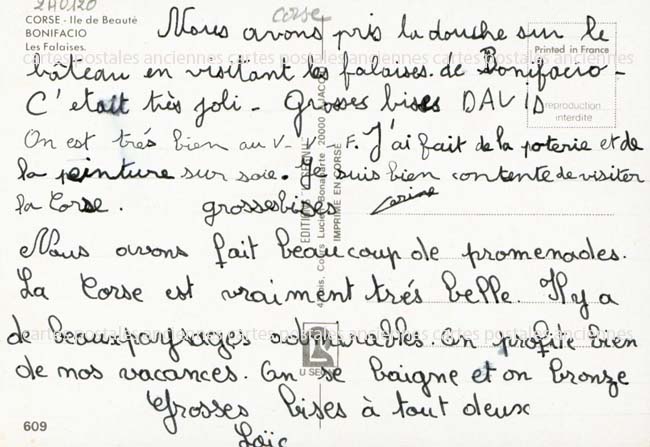 2A0120
corse
CORSE - Ile de Beauté
BONIFACIO
Les Falaises.
Printed in France
reproduction
interdite
Nous avons pris la douche sur le
bâteau en visitant les falaises de Bonifacio -
C'était très joli - Grosses bises DAVID
On est trés bien au V - V - F. J'ai fait de la poterie et de
la peinture sur soie. Je suis bien contente de visiter
la Corse. grosses bises Carine
Nous avons fait beaucoup de promenades.
La Corse est vraiment trés belle. Il y a
de beaux paysages admirables. On profite bien
de nos vacances. On se baigne et on bronze
Grosses bises à tout deux
Loïc
609
IMPRIME EN CORSE
cartes postales anciennes cartes postales anciennes cartes postales anciennes
cartes postales anciennes cartes postales anciennes cartes postales anciennes